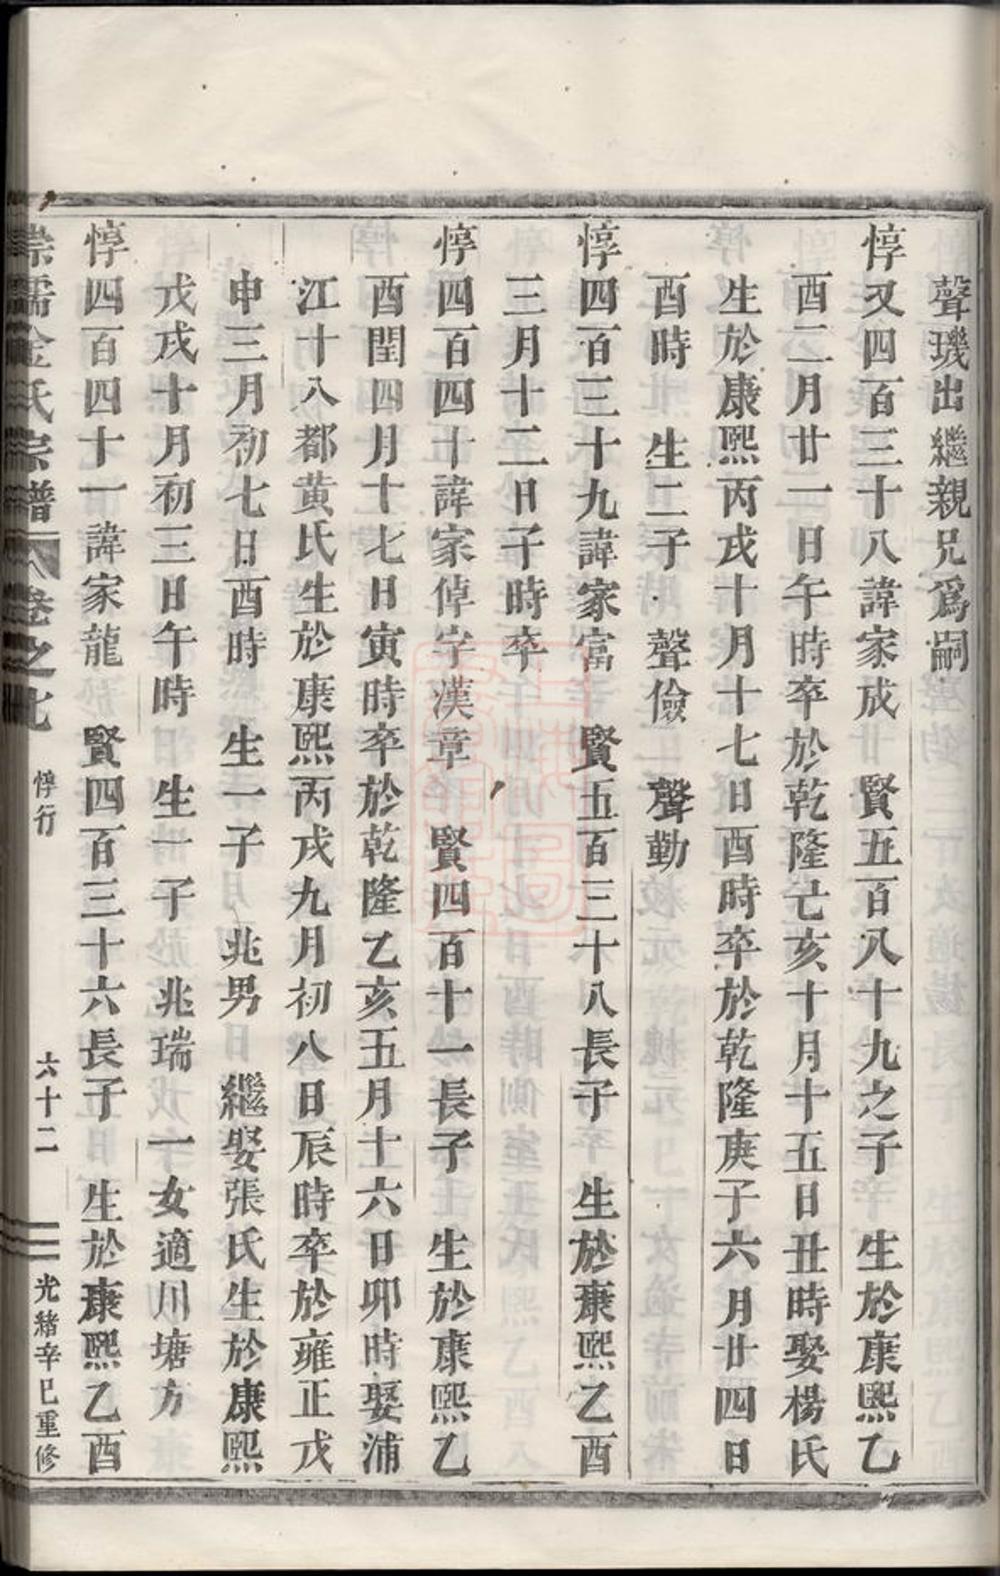 聲璣出繼親兄爲嗣
惇又四百三十八諱家成　賢五百八十九之子　生於康熙乙
酉二月廿一日午時卒於乾隆亡亥十月十五日丑時娶楊氏
生於康熙丙戌十月十七日酉時卒於乾隆庚子六月廿四日
酉時　生二子　聲儉　聲勤
惇四百三十九諱家富　賢五百三十八長子　生於康熙乙酉
三月十二日子時卒
惇四百四十諱家倬字漢章　賢四百十一長子　生於康熙乙
酉閏四月十七日寅時卒於乾隆乙亥五月十六日卯時娶浦
江十八都黃氏生於康熙丙戌九月初八日辰時卒於雍正戊
申三月初七日酉時　生一子　兆男　繼娶張氏生於康熙
戊戌十月初三日午時　生一子　兆瑞　一女適川塘方
惇四百四十一諱家龍　賢四百三十六長子　生於康熙乙酉
崇儒金氏宗譜　卷之七　惇行　六十二　光緒辛巳重修